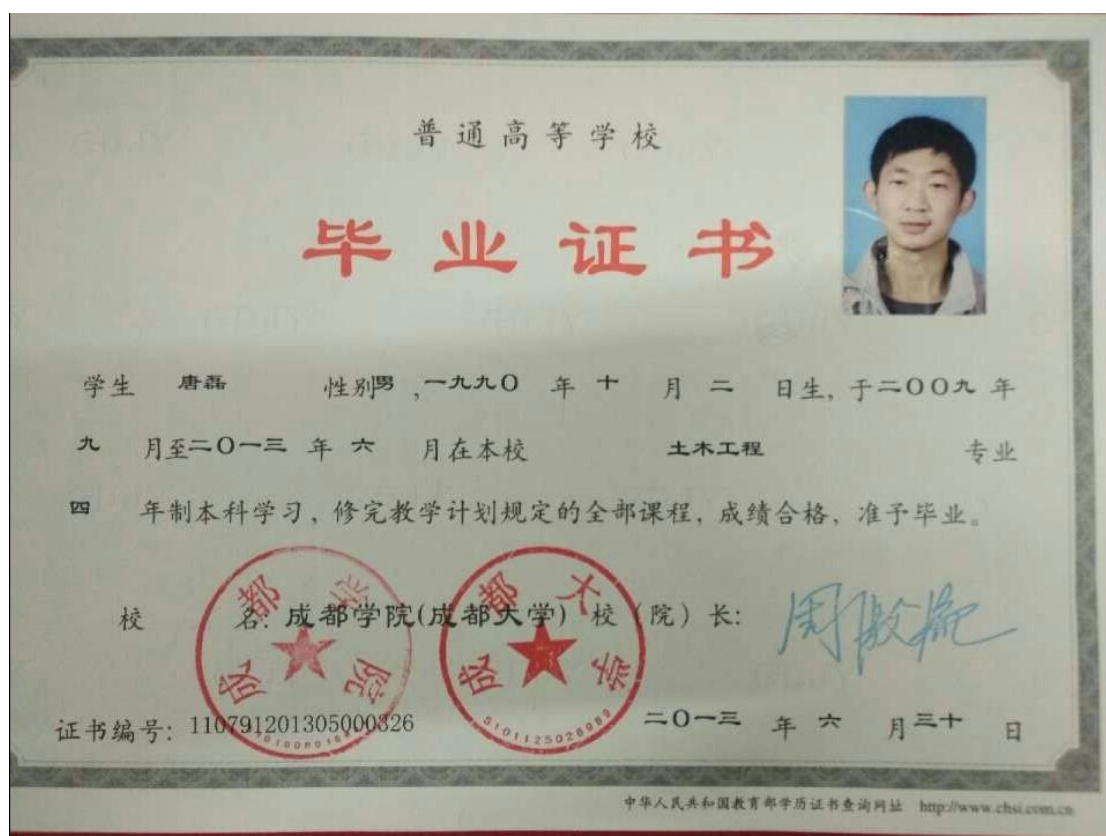 普通高等学校
毕业证书
学生 唐磊 性别男，一九九〇 年 十 月 二 日生，于二〇〇九 年
九 月至二〇一三 年 六 月在本校 土木工程 专业
四 年制本科学习，修完教学计划规定的全部课程，成绩合格，准予毕业。
校 名：成都学院(成都大学) 校（院）长：
成都学院
成都大学
5101125028989
证书编号：110791201305000326
二〇一三 年 六 月三十 日
中华人民共和国教育部学历证书查询网址 http://www.chsi.com.cn